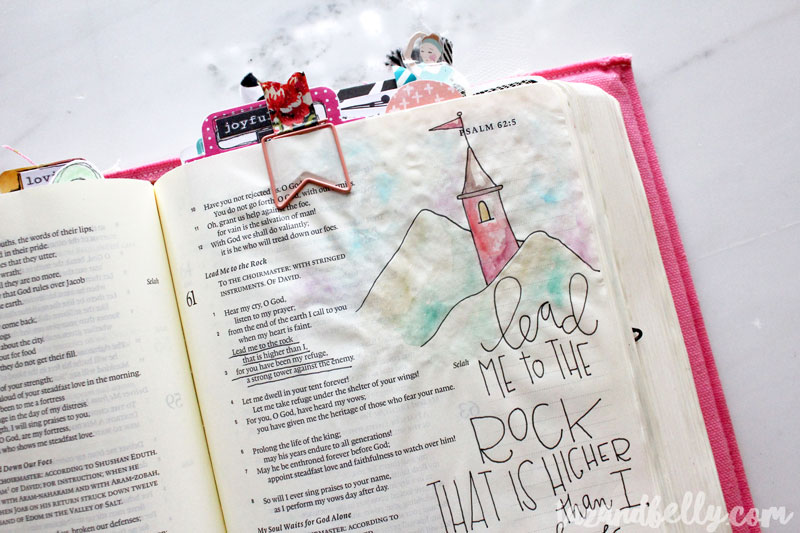 joyful
lovi
PSALM 62:5
ouths, the words of their lips,
d in their pride.
es that they utter,
wrath;
ll they are no more,
that God rules over Jacob
e earth.
Selah
come back,
ngs
bout the city.
out for food
they do not get their fill.
of your strength;
aloud of your steadfast love in the morning.
been to me a fortress
ge in the day of my distress.
gth, I will sing praises to you,
d, are my fortress,
who shows me steadfast love.
d Down Our Foes
ASTER: ACCORDING TO SHUSHAN EDUTH.
OF DAVID; FOR INSTRUCTION; WHEN HE
WITH ARAM-NAHARAIM AND WITH ARAM-ZOBAH,
EN JOAB ON HIS RETURN STRUCK DOWN TWELVE
ND OF EDOM IN THE VALLEY OF SALT.
broken our defenses;
10 Have you not rejected us, O God?
You do not go forth, O God, with our armies.
11 Oh, grant us help against the foe,
for vain is the salvation of man!
12 With God we shall do valiantly;
it is he who will tread down our foes.
Lead Me to the Rock
61 TO THE CHOIRMASTER: WITH STRINGED
INSTRUMENTS. OF DAVID.
1 Hear my cry, O God,
listen to my prayer;
2 from the end of the earth I call to you
when my heart is faint.
Lead me to the rock
that is higher than I,
3 for you have been my refuge,
a strong tower against the enemy.
4 Let me dwell in your tent forever!
Let me take refuge under the shelter of your wings! Selah
5 For you, O God, have heard my vows;
you have given me the heritage of those who fear your name.
6 Prolong the life of the king;
may his years endure to all generations!
7 May he be enthroned forever before God;
appoint steadfast love and faithfulness to watch over him!
8 So will I ever sing praises to your name,
as I perform my vows day after day.
My Soul Waits for God Alone
TO THE CHOIRMASTER: ACCORDING TO
lead
ME to THE
ROCK
THAT IS HIGHER
than I
andbelly.com